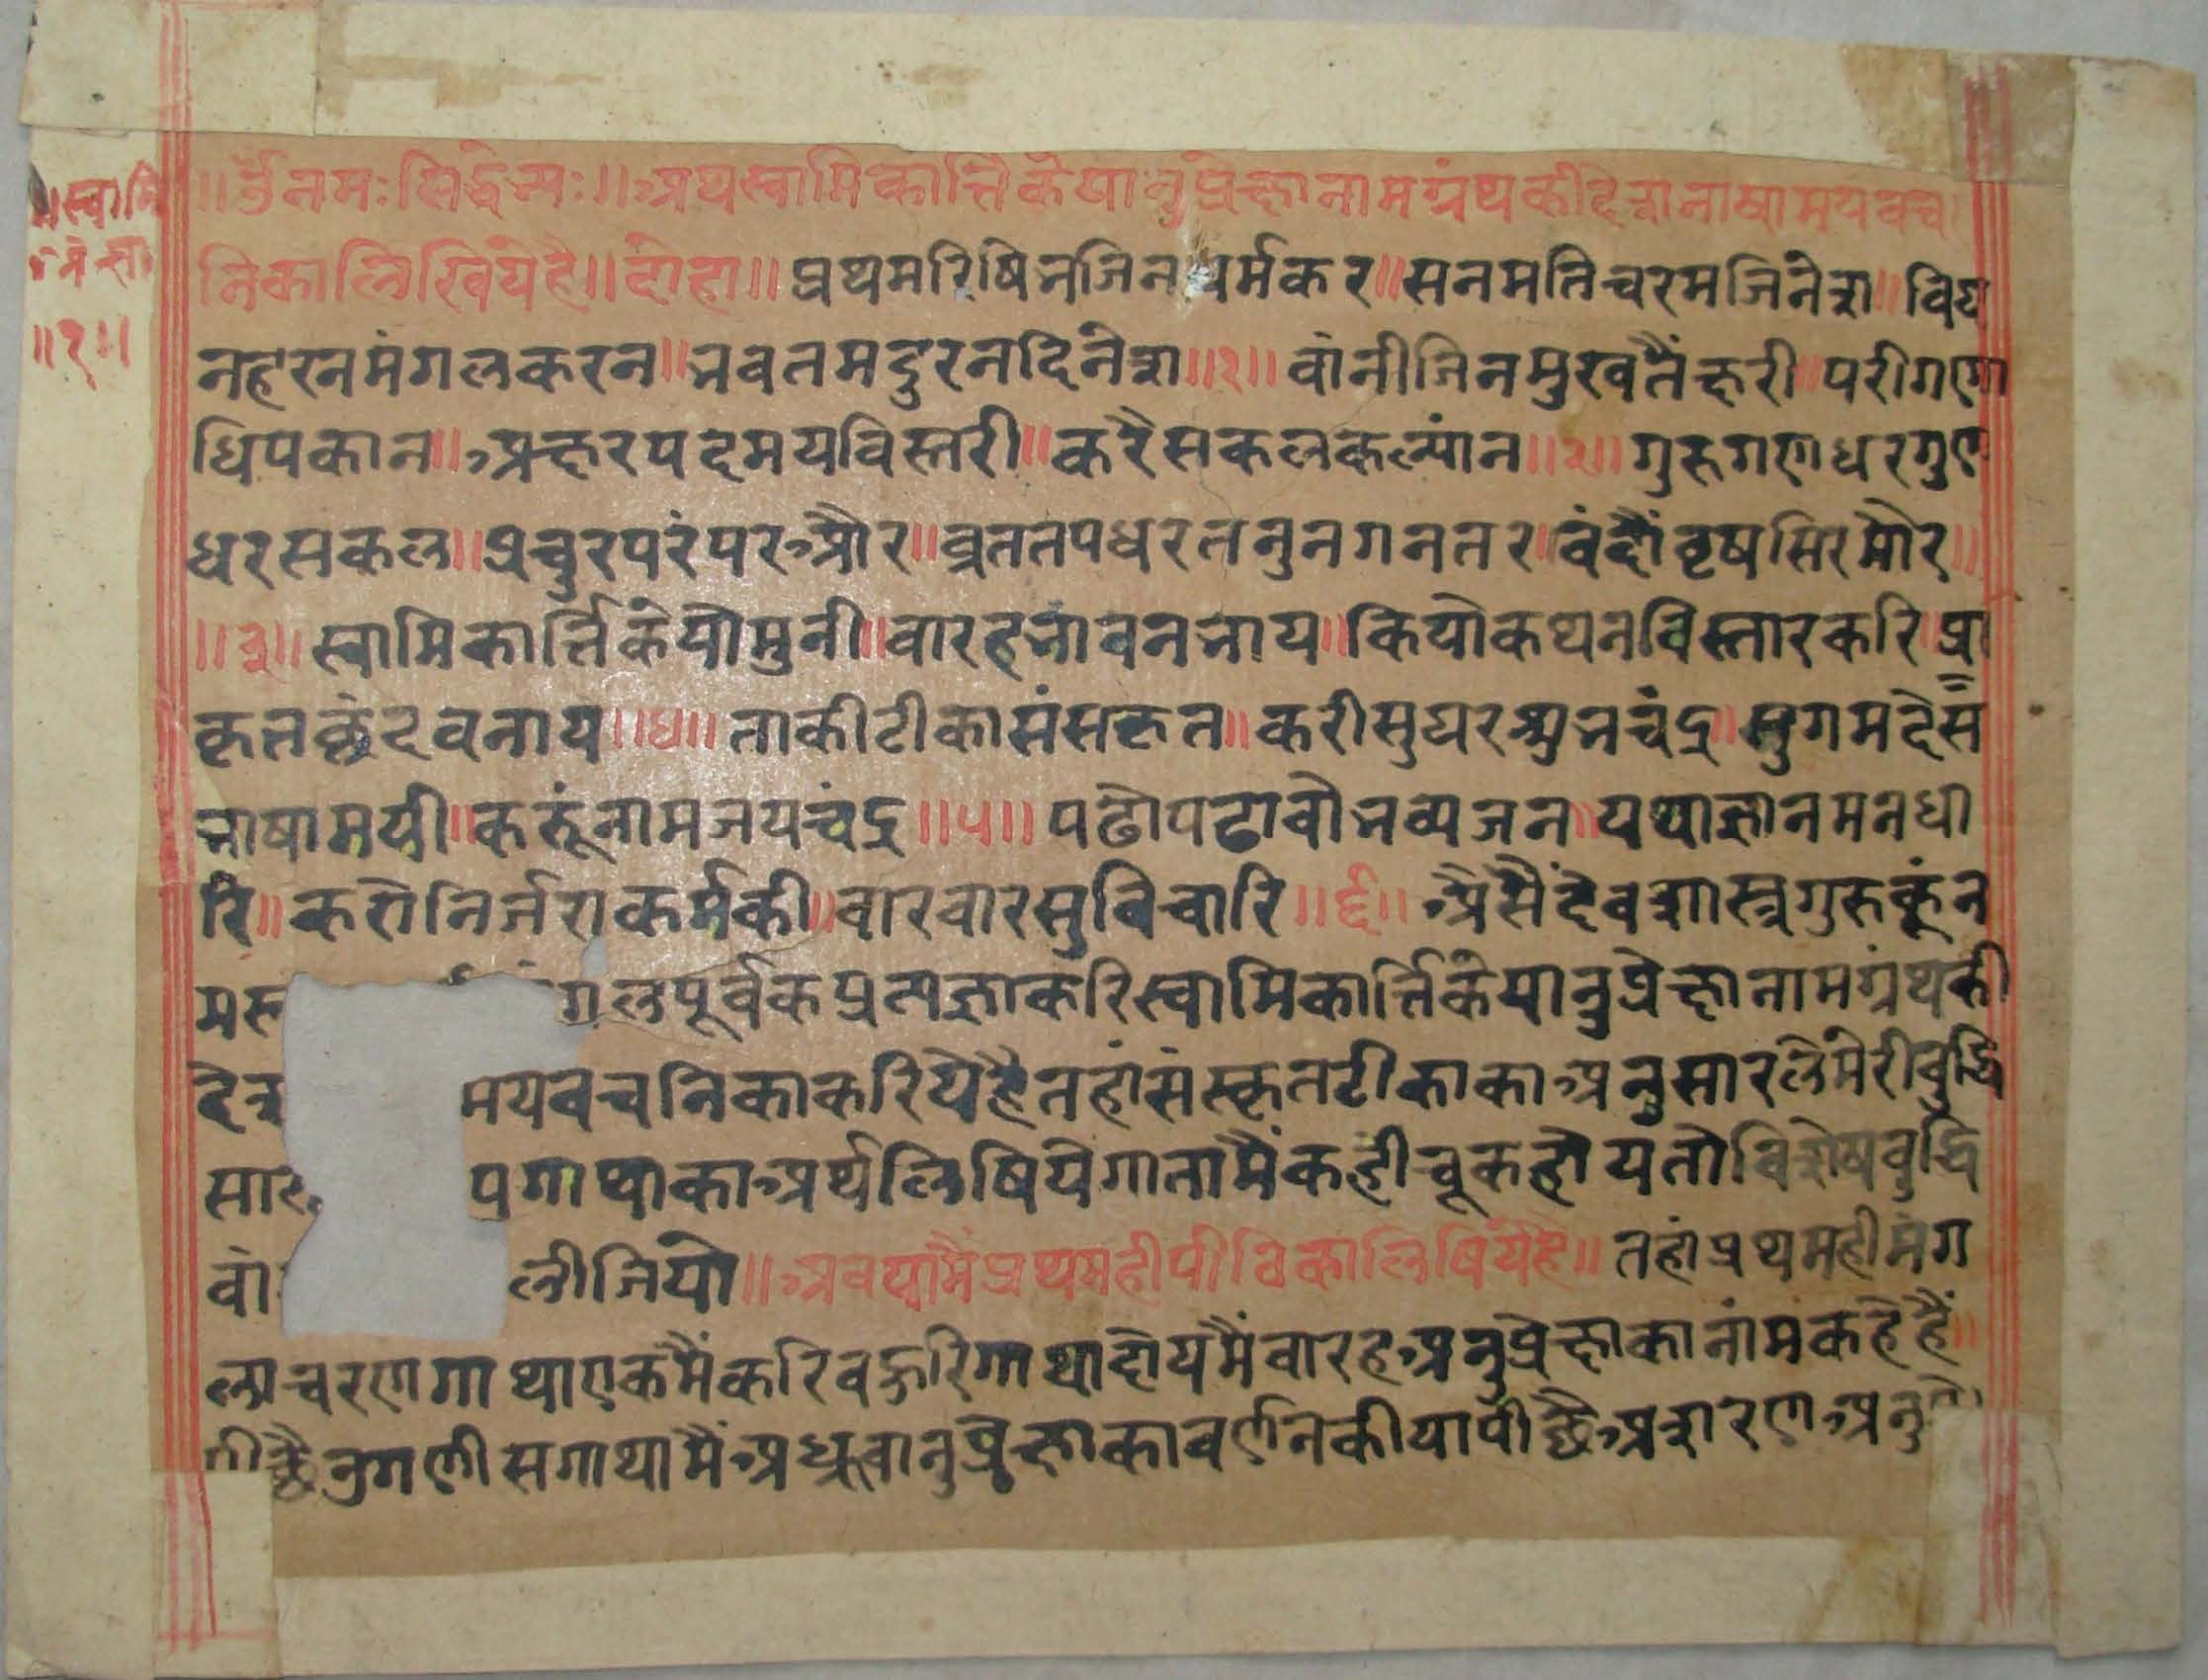 ॥स्वामि
प्रेक्षा
॥१॥
॥ॐनमःसिद्धेभ्यः॥अथस्वामिकार्त्तिकेयानुप्रेक्षानामग्रंथकीदेशभाषामयवच
निकालिखियेहै॥दोहा॥प्रथमरिषिभजिनधर्मकर॥सनमतिचरमजिनेश॥विघ
नहरनमंगलकरन॥भवतमदुरनदिनेश॥१॥वांनीजिनमुखतैंझरी॥परीगणा
धिपकान॥अक्षरपदमयविस्तरी॥करैसकलकल्यांन॥२॥गुरुगणधरगुण
धरसकल॥प्रचुरपरंपरऔर॥व्रततपधरतनुनगनतर॥वंदौंवृषसिरमौर॥
॥३॥स्वामिकार्त्तिकेयौमुनी॥वारहभावनभाय॥कियोकथनविस्तारकरि॥प्रा
कृतछंदवनाय॥४॥ताकीटीकासंसकृत॥करीसुघरशुभचंद्र॥सुगमदेस
भाषामयी॥करूंनामजयचंद्र॥५॥पढौपढावौभव्यजन॥यथाज्ञानमनधा
रि॥करौनिर्जराकर्मकी॥वारवारसुविचारि॥६॥अैसैंदेवशास्त्रगुरुकूंन
मस्का गलपूर्वकप्रत्यज्ञाकरिस्वामिकार्त्तिकेयानुप्रेक्षानामग्रंथकी
देश मयवचनिकाकरियेहैतहांसंस्कृतटीकाकाअनुसारलेमेरीवुद्धि
सार पगाथाकाअर्थलिषियेगातामैंकहीचूकहोयतौविशेषवुद्धि
वां लीजियौ॥अवयामैंप्रथमहीपीठिकालिषियेहै॥तहांप्रथमहीमंग
लाचरणगाथाएकमैंकरिवहुरिगाथादोयमैंवारहअनुप्रेक्षाकानांमकहेहैं॥
पीछैउगणीसगाथामैंअध्रुवानुप्रेक्षाकावर्णनकीयापीछैअशरणअनु